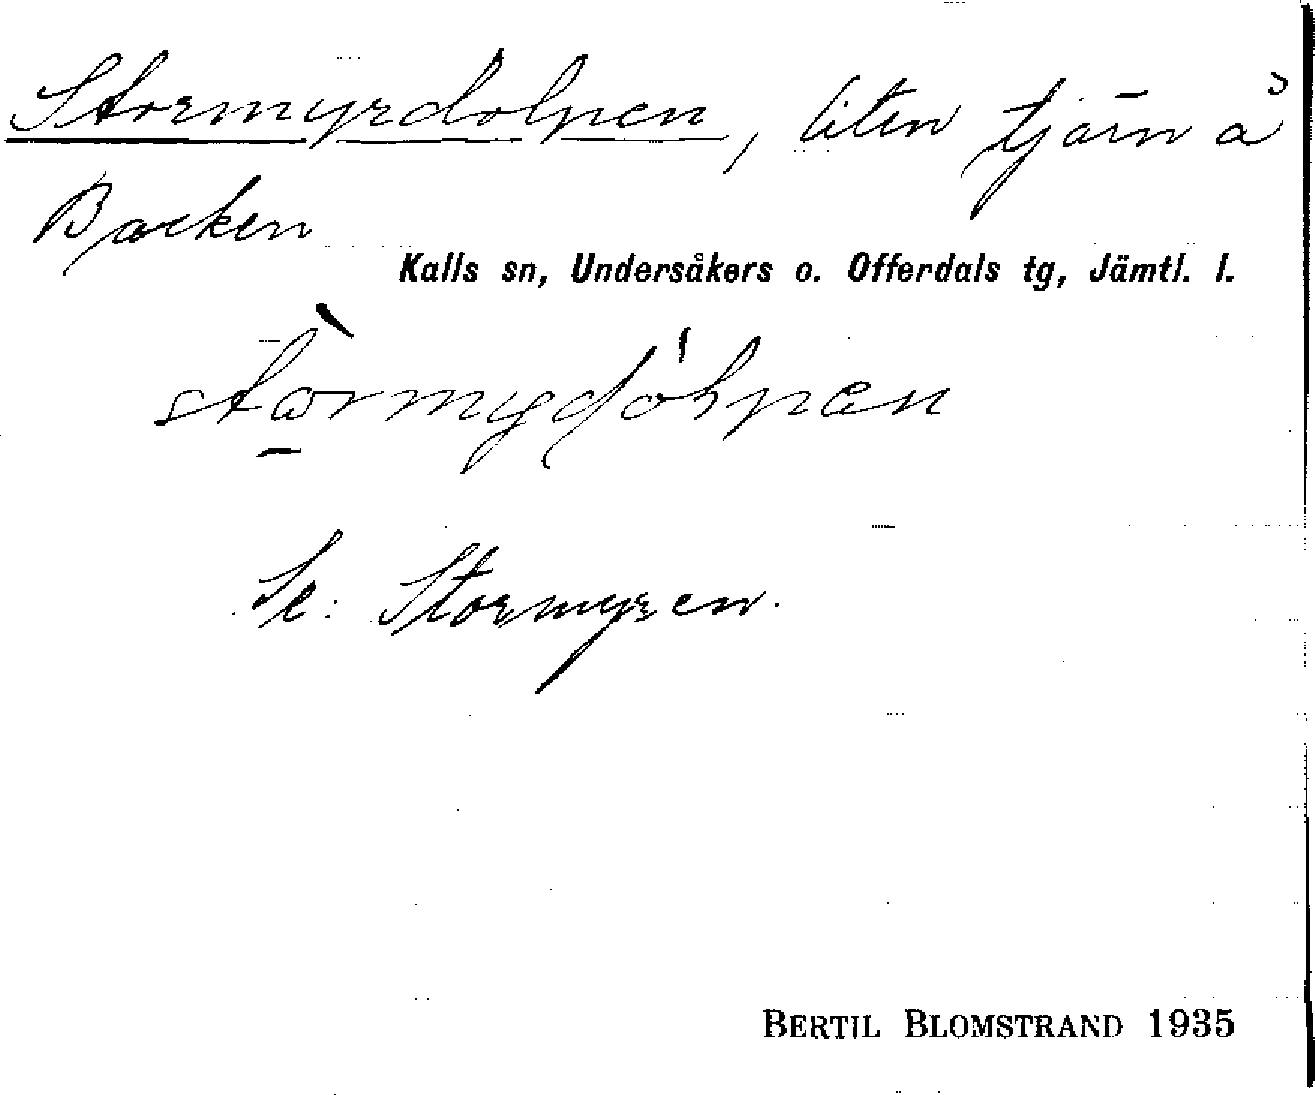 Stormyrdolpen, liten tjärn å
Backen
Kalls sn, Undersåkers o. Offerdals tg, Jämtl. l.
Se: Stormyren.
BERTIL BLOMSTRAND 1935